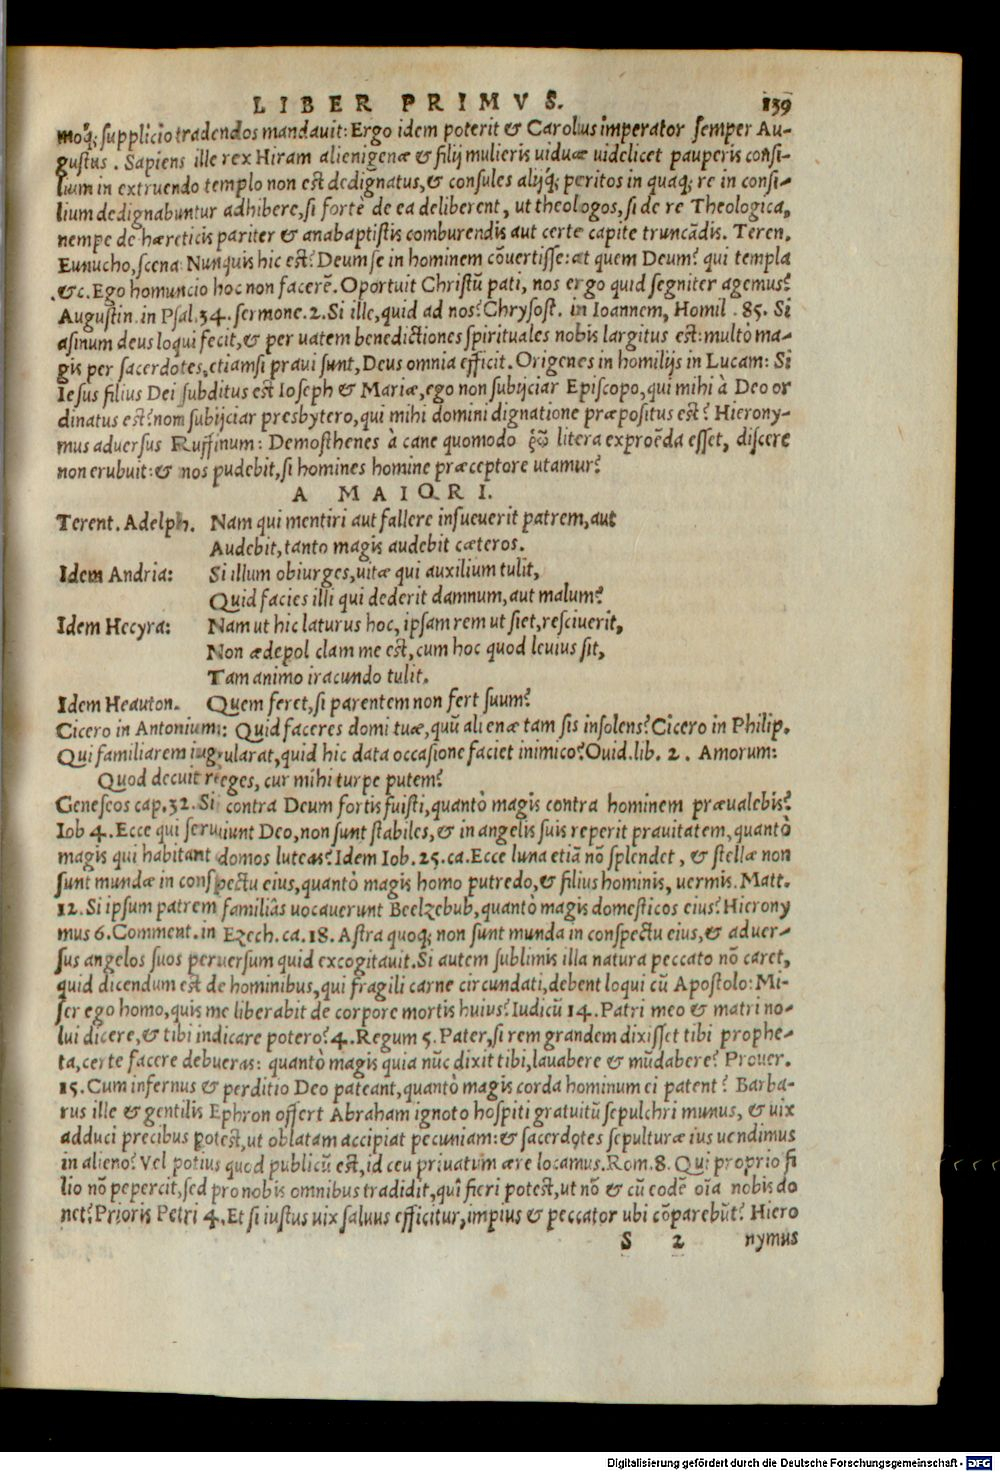 LIBER PRIMVS. 139
moq́; supplicio tradendos mandauit: Ergo idem poterit & Carolus imperator semper Au-
gustus. Sapiens ille rex Hiram alienigenæ & filij mulieris uiduæ uidelicet pauperis consi-
lium in extruendo templo non est dedignatus, & consules alijq́; peritos in quaq; re in consi-
lium dedignabuntur adhibere, si fortè de ea deliberent, ut theologos, si de re Theologica,
nempe de hæreticis pariter & anabaptistis comburendis aut certe capite truncādis. Teren.
Eunucho, scena: Nunquis hic est? Deum se in hominem cōuertisse: at quem Deum? qui templa
&c. Ego homuncio hoc non facerē. Oportuit Christū pati, nos ergo quid segniter agemus?
Augustin. in Psal. 34. sermone. 2. Si ille, quid ad nos? Chrysost. in Ioannem, Homil. 85. Si
asinum deus loqui fecit, & per uatem benedictiones spirituales nobis largitus est: multò ma-
gis per sacerdotes, etiamsi praui sunt, Deus omnia efficit. Origenes in homilijs in Lucam: Si
Iesus filius Dei subditus est Ioseph & Mariæ, ego non subijciar Episcopo, qui mihi à Deo or
dinatus est? nom subijciar presbytero, qui mihi domini dignatione præpositus est? Hierony-
mus aduersus Ruffinum: Demosthenes à cane quomodo litera expromēda esset, discere
non erubuit: & nos pudebit, si homines homine præceptore utamur?
A MAIORI.
Terent. Adelph. Nam qui mentiri aut fallere insueuerit patrem, aut
Audebit, tanto magis audebit cæteros.
Idem Andria: Si illum obiurges, uitæ qui auxilium tulit,
Quid facies illi qui dederit damnum, aut malum?
Idem Hecyra: Nam ut hic laturus hoc, ipsam rem ut siet, resciuerit,
Non ædepol clam me est, cum hoc quod leuius sit,
Tam animo iracundo tulit.
Idem Heauton. Quem feret, si parentem non fert suum?
Cicero in Antonium: Quid faceres domi tuæ, quū alienæ tam sis insolens? Cicero in Philip.
Qui familiarem iugularat, quid hic data occasione faciet inimico? Ouid. lib. 2. Amorum:
Quod decuit reges, cur mihi turpe putem?
Geneseos cap. 32. Si contra Deum fortis fuisti, quantò magis contra hominem præualebis?
Iob 4. Ecce qui seruiunt Deo, non sunt stabiles, & in angelis suis reperit prauitatem, quantò
magis qui habitant domos luteas? Idem Iob. 25. ca. Ecce luna etiā nō splendet, & stellæ non
sunt mundæ in conspectu eius, quantò magis homo putredo, & filius hominis, uermis. Matt.
12. Si ipsum patrem familiâs uocauerunt Beelzebub, quantò magis domesticos eius? Hierony
mus 6. Comment. in Ezech. ca. 18. Astra quoq; non sunt munda in conspectu eius, & aduer-
sus angelos suos peruersum quid excogitauit. Si autem sublimis illa natura peccato nō caret,
quid dicendum est de hominibus, qui fragili carne circundati, debent loqui cū Apostolo: Mi-
ser ego homo, quis me liberabit de corpore mortis huius? Iudicū 14. Patri meo & matri no-
lui dicere, & tibi indicare potero? 4. Regum 5. Pater, si rem grandem dixisset tibi prophe-
ta, certe facere debueras: quantò magis quia nūc dixit tibi, lauabere & mūdabere? Prouer.
15. Cum infernus & perditio Deo pateant, quantò magis corda hominum ei patent? Barba-
rus ille & gentilis Ephron offert Abraham ignoto hospiti gratuitū sepulchri munus, & uix
adduci precibus potest, ut oblatam accipiat pecuniam: & sacerdotes sepulturæ ius uendimus
in alieno? Vel potius quod publicū est, id ceu priuatum ære locamus. Rom. 8. Qui proprio fi
lio nō pepercit, sed pro nobis omnibus tradidit, quî fieri potest, ut nō & cū eodē oīa nobis do
net? Prioris Petri 4. Et si iustus uix saluus efficitur, impius & peccator ubi cōparebūt? Hiero
S 2 nymus
Digitalisierung gefördert durch die Deutsche Forschungsgemeinschaft - DFG